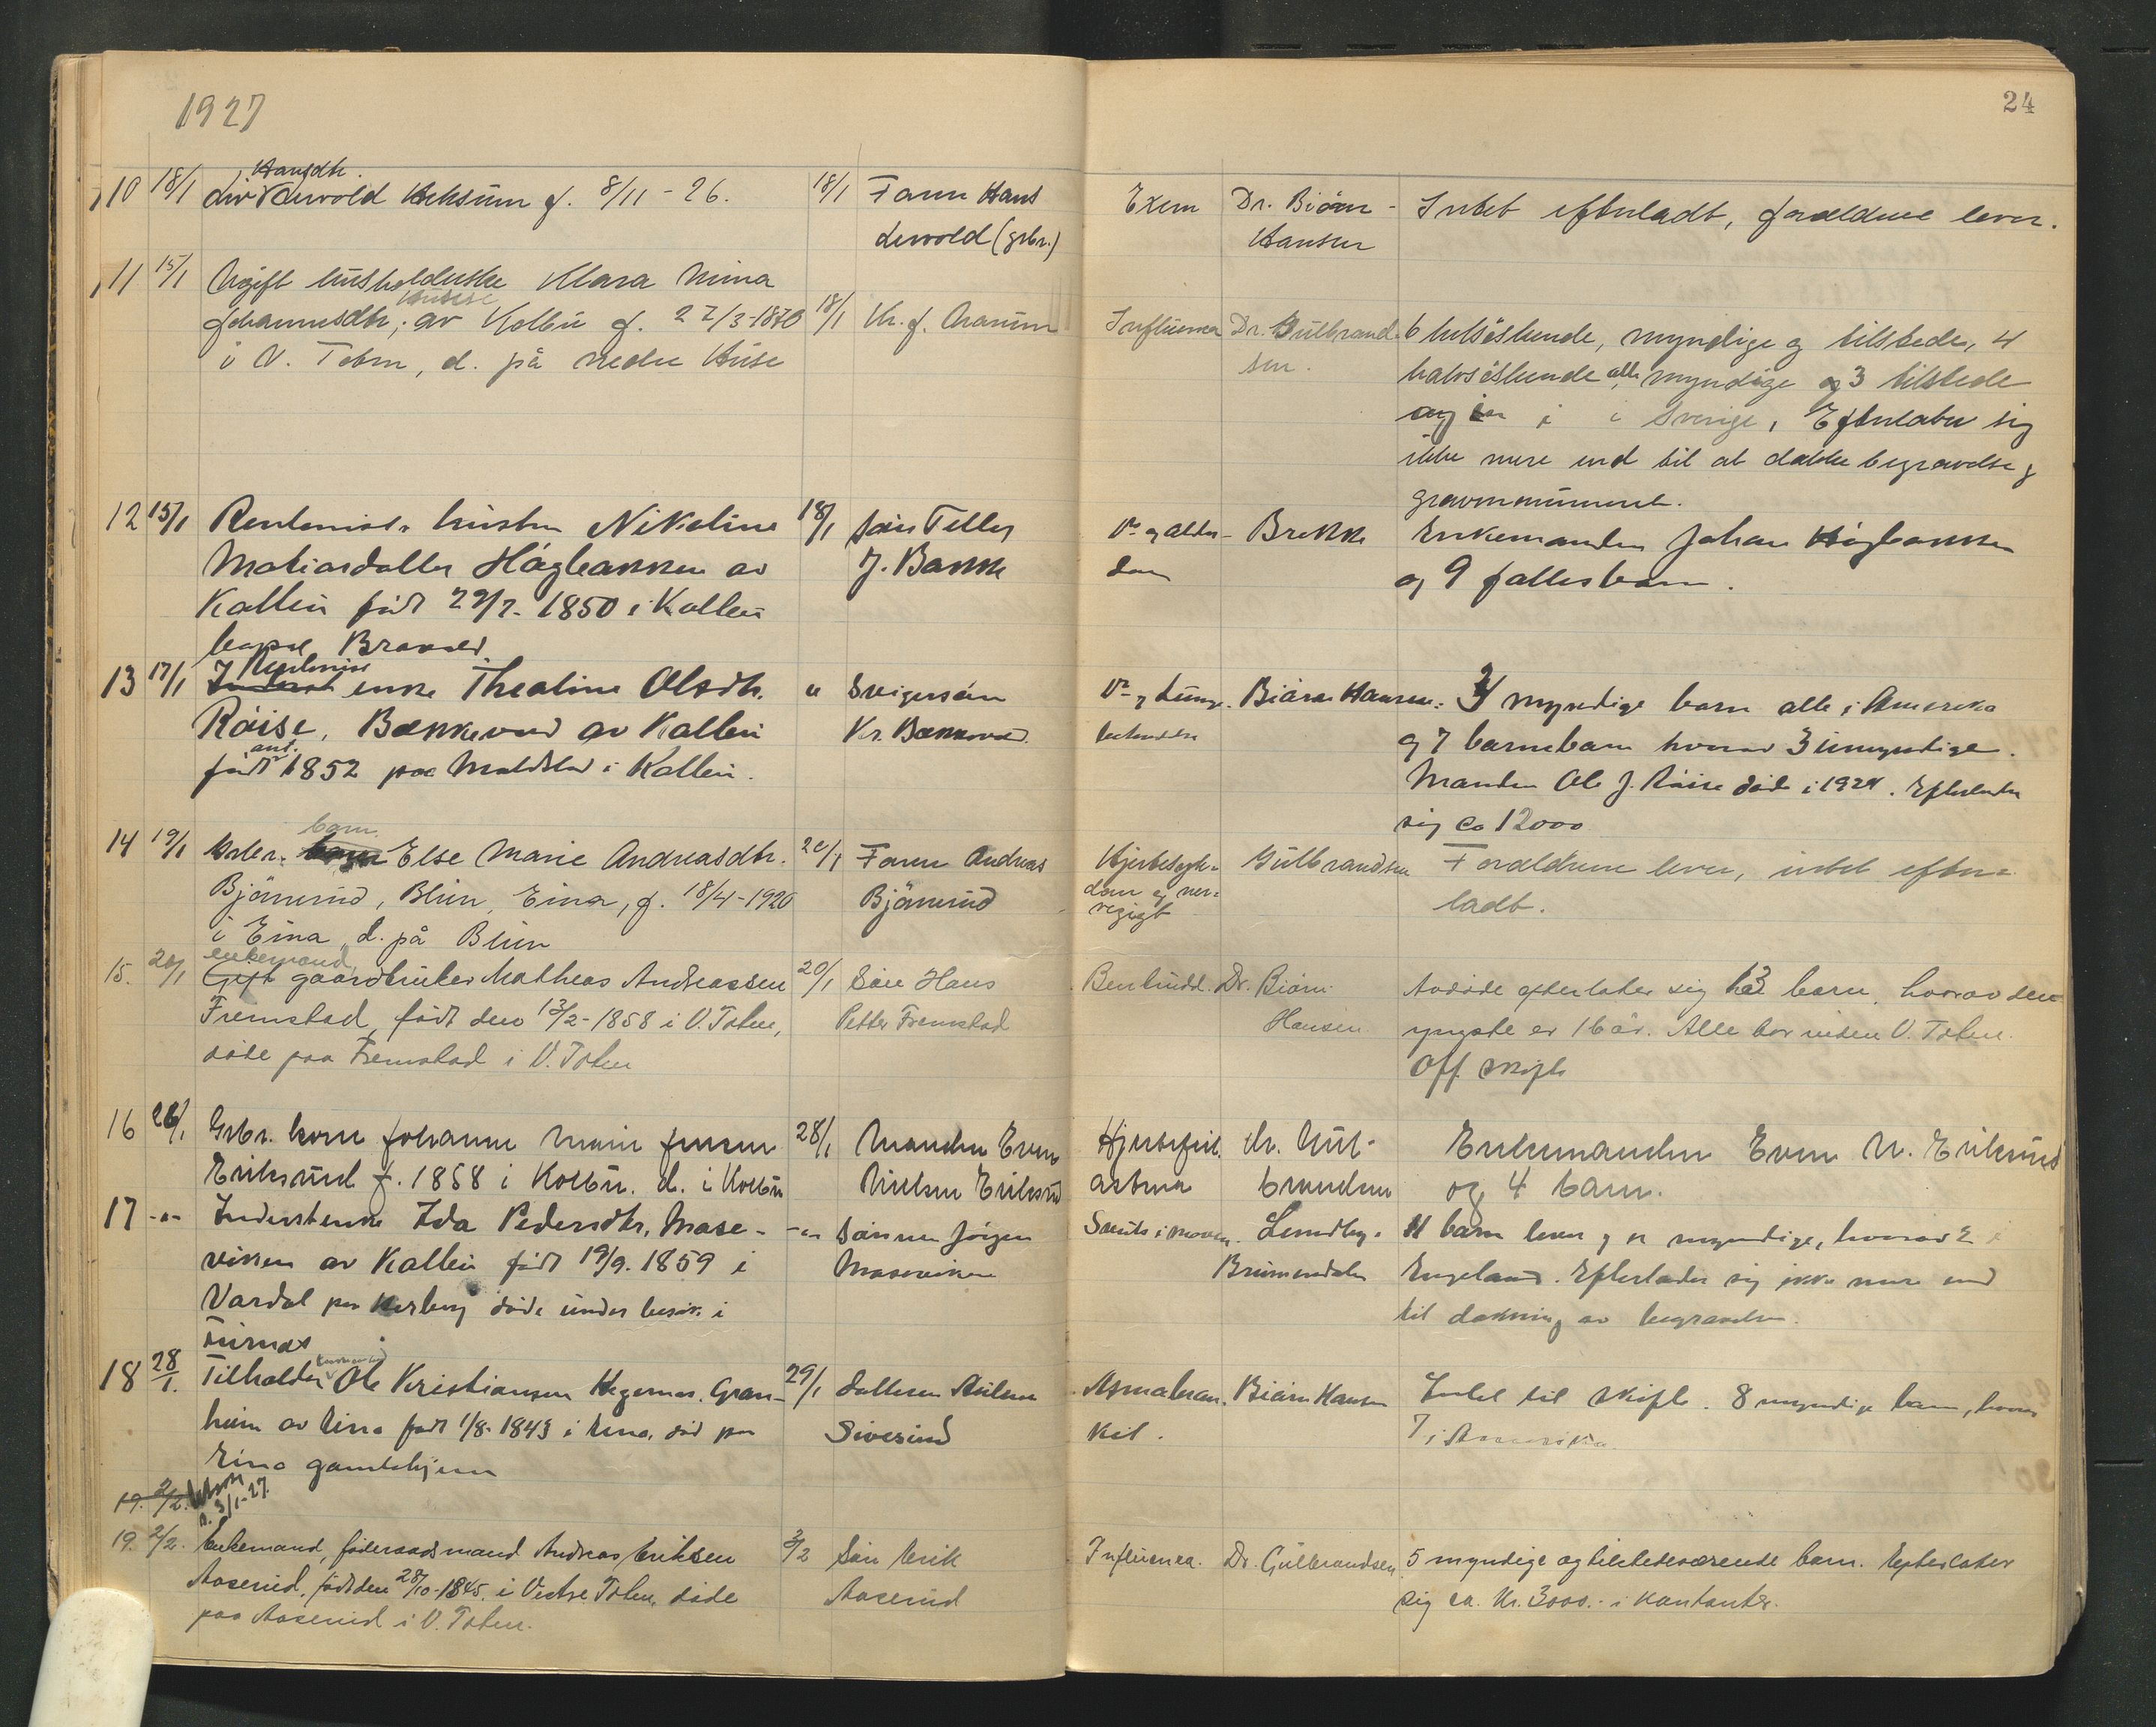 1927
24
10 18/1 Liv Hansdtr. f. 8/11 - 26. 18/1 Faren Hans Exem Dr. Biørn- Intet efterladt, forældrene lever.
(grbr.) Hansen
11 15/1 Ugift husholderske Klara Mina
Johannesdtr. av Kolbu f. 27/3-1870 18/1 Influensa Dr. Gulbrand- 6 helsøskende, myndige og tilstede, 4
i V. Toten, d. på nedre Huse sen. halvsøskende alle myndige og 3 tilstede
i Sverige, Efterlater sig
ikke mere end til at dække begravelse og
gravmonument.
12 15/1 Rentenist. hustru Nikoline 18/1 Brekke Enkemanden Johan Høgbakken
Høgbakken av J. Bakke dom og 9 fællesbarn.
Kolbu født 29/7- 1850 i Kolbu
13 17/1 enke Theoline Olsdtr. " Svigersøn Biørn Hansen. myndige barn alle i Amerika
Røise, Bækkevold av Kolbu Kr. Bækkevold betændelse og 7 barnebarn hvorav 3 umyndige.
født ant. 1852 paa i Kolbu. Manden Ole J. Røise døde i 1924. Efterlader
sig ca 12000
14 19/1 Grbr. barn Else Marie Andreasdtr. Faren Andreas Hjertesyk- Gulbrandsen Forældrene lever, intet efter-
Bjørnerud, Blien, Eina, f. 18/4-1920 Bjørnerud dom og ner- ladt.
i Eina, d. på Blien vegigt
15. 20/1 Gift enkemand gaardbruker Matheas Andreassen 20/1 Søn Hans Benbrudd. Dr. Biørn Avdøde efterlater sig 13 barn, hvorav den
Fremstad, født den 13/2-1858 i V. Toten, Petter Fremstad Hansen yngste er 16 år. Alle bor inden V. Toten.
døde paa Fremstad i V. Toten Off. skifte
16 26/1 Grbr. kone Johanne Marie Jensen 28/1 Manden Even Hjertefeil. dr. Gul- Enkemanden Even N. Eriksrud
Eriksrud f. 1858 i Kolbu. d. i Kolbu Nielsen Eriksrud astma brandsen og 4 barn.
17 -"- Inderstenke Ida Pedersdtr. Mase- -"- Sønnen Jørgen Lundby. barn lever og er myndige, hvorav 2 i
viken av Kolbu født 19/9. 1859 i Maseviken Brumendalen Engeland. Efterlader sig ikke mere end
Vardal paa døde under besøk i til dekning av begravelsen.
Furnes
18 28/1. Tilholder Ole Kristiansen Hegernes. Gran- 29/1 Biørn Hansen Intet til skifte. 8 myndige barn, hvorav
heim av Eina født 1/8-1843 i Eina, død paa Siverud kit. 7 i Amerika
Eina gamlehjem
19. 2/2. 3/1-27.
19. 2/2. Enkemand, føderaadsmand Andreas Eriksen 3/2 Søn Erik Influensa. Dr. Gulbrandsen. 5 myndige og tilstedeværende barn. Efterlater
Aaserud, født den 28/10-1845. i Vestre Toten, døde Aaserud sig ca. Kr. 3000.- i kontanter.
paa Aaserud i V. Toten.